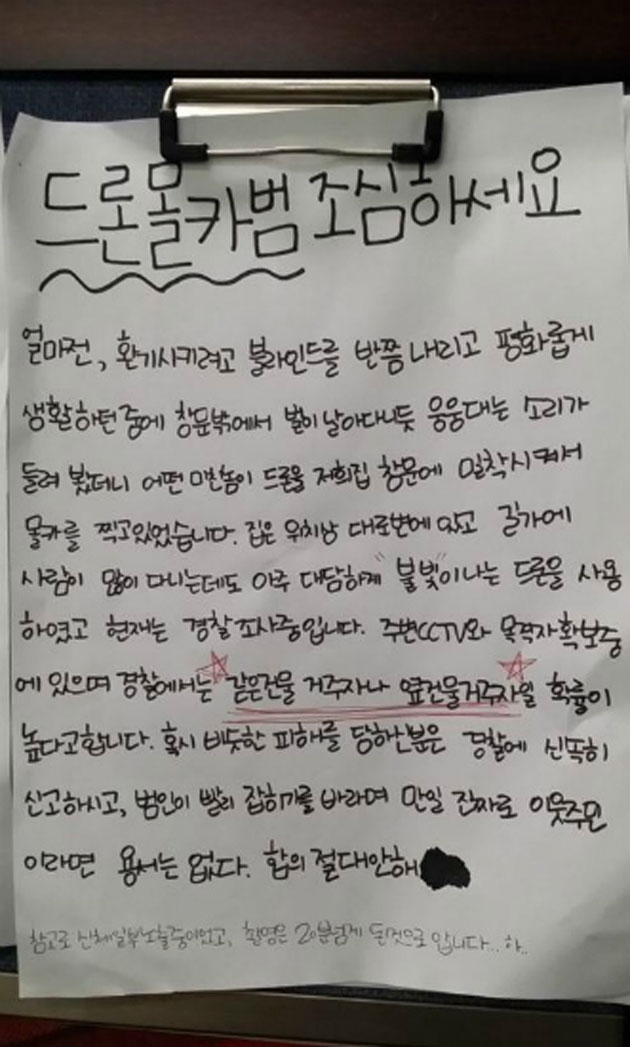 드론몰카범 조심하세요
얼마전, 환기시키려고 블라인드를 반쯤 내리고 평화롭게
생활하던 중에 창문밖에서 벌이 날아다니듯 웅웅대는 소리가
들려 봤더니 어떤 미친놈이 드론을 저희집 창문에 밀착시켜서
몰카를 찍고있었습니다. 집은 위치상 대로변에 있고 길가에
사람이 많이 다니는데도 아주 대담하게 "불빛"이 나는 드론을 사용
하였고 현재는 경찰조사중입니다. 주변CCTV와 목격자확보중
에 있으며 경찰에서는 같은건물 거주자나 옆건물거주자일 확률이
높다고합니다. 혹시 비슷한 피해를 당하신분은 경찰에 신속히
신고하시고, 범인이 빨리 잡히기를 바라며 만일 진짜로 이웃주민
이라면 용서는 없다. 합의 절대안해
참고로 신체일부노출중이었고, 촬영은 20분넘게 된것으로 압니다..하..